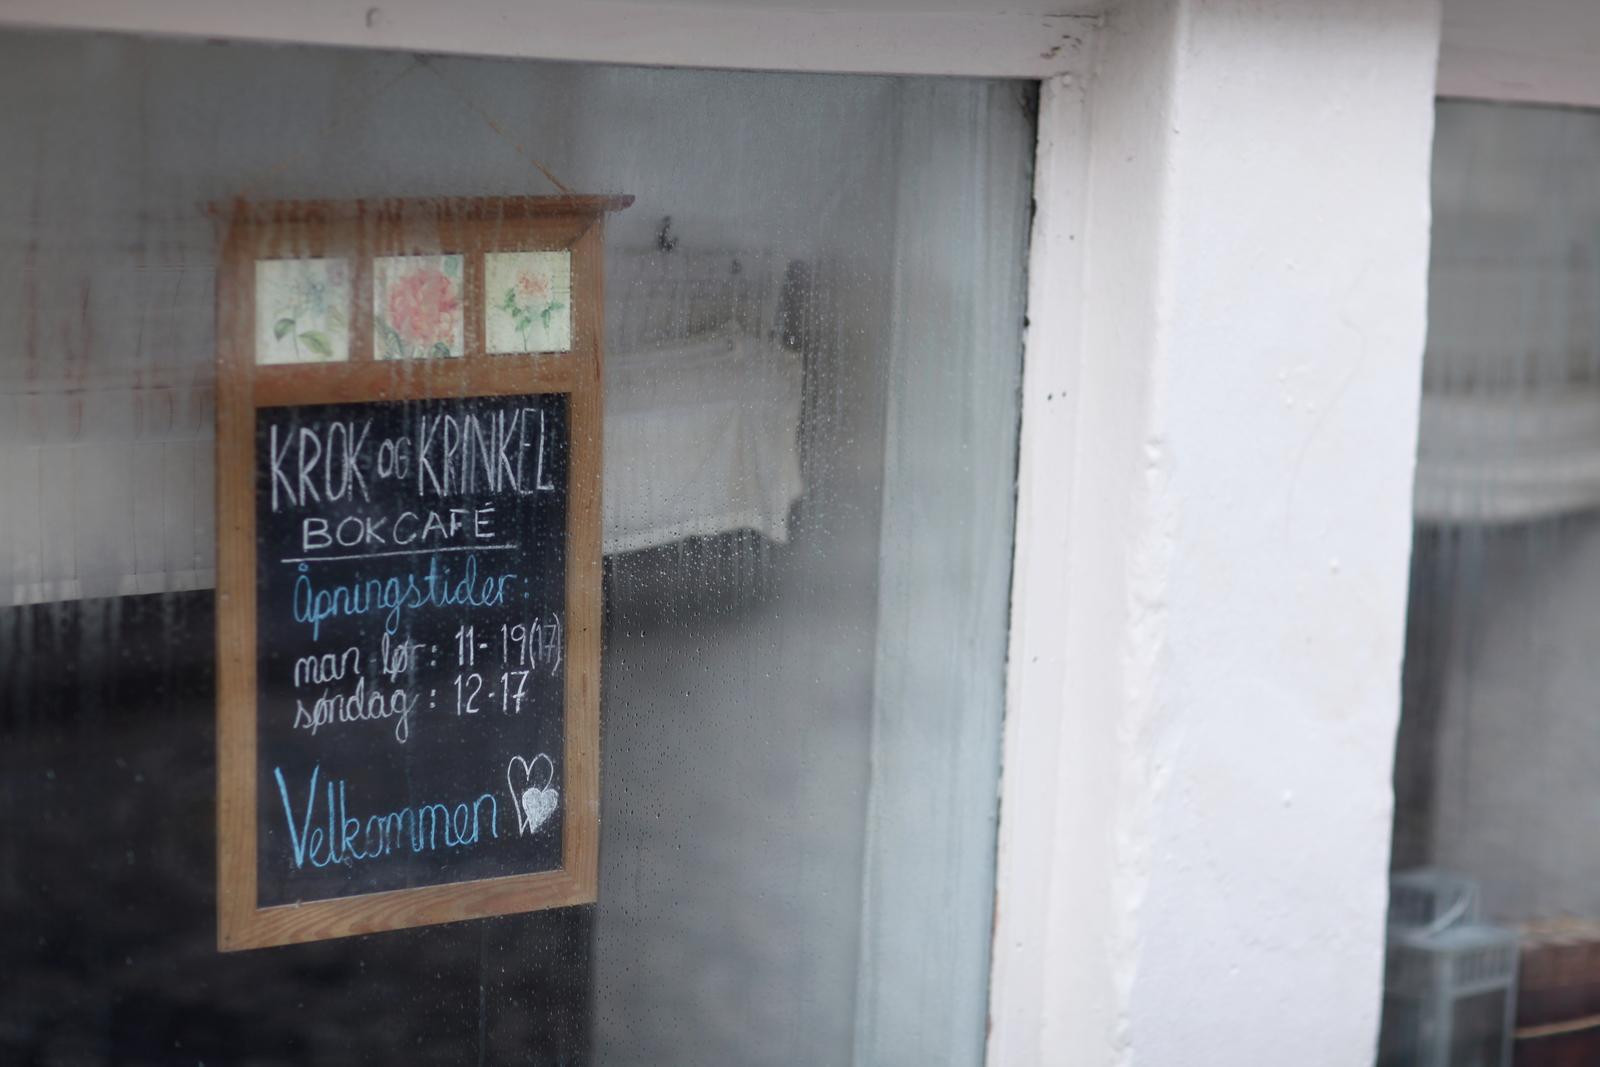 KROK OG KRINKEL
BOKCAFÉ
Åpningstider:
man - lør : 11- 19(17)
søndag : 12-17
Velkommen